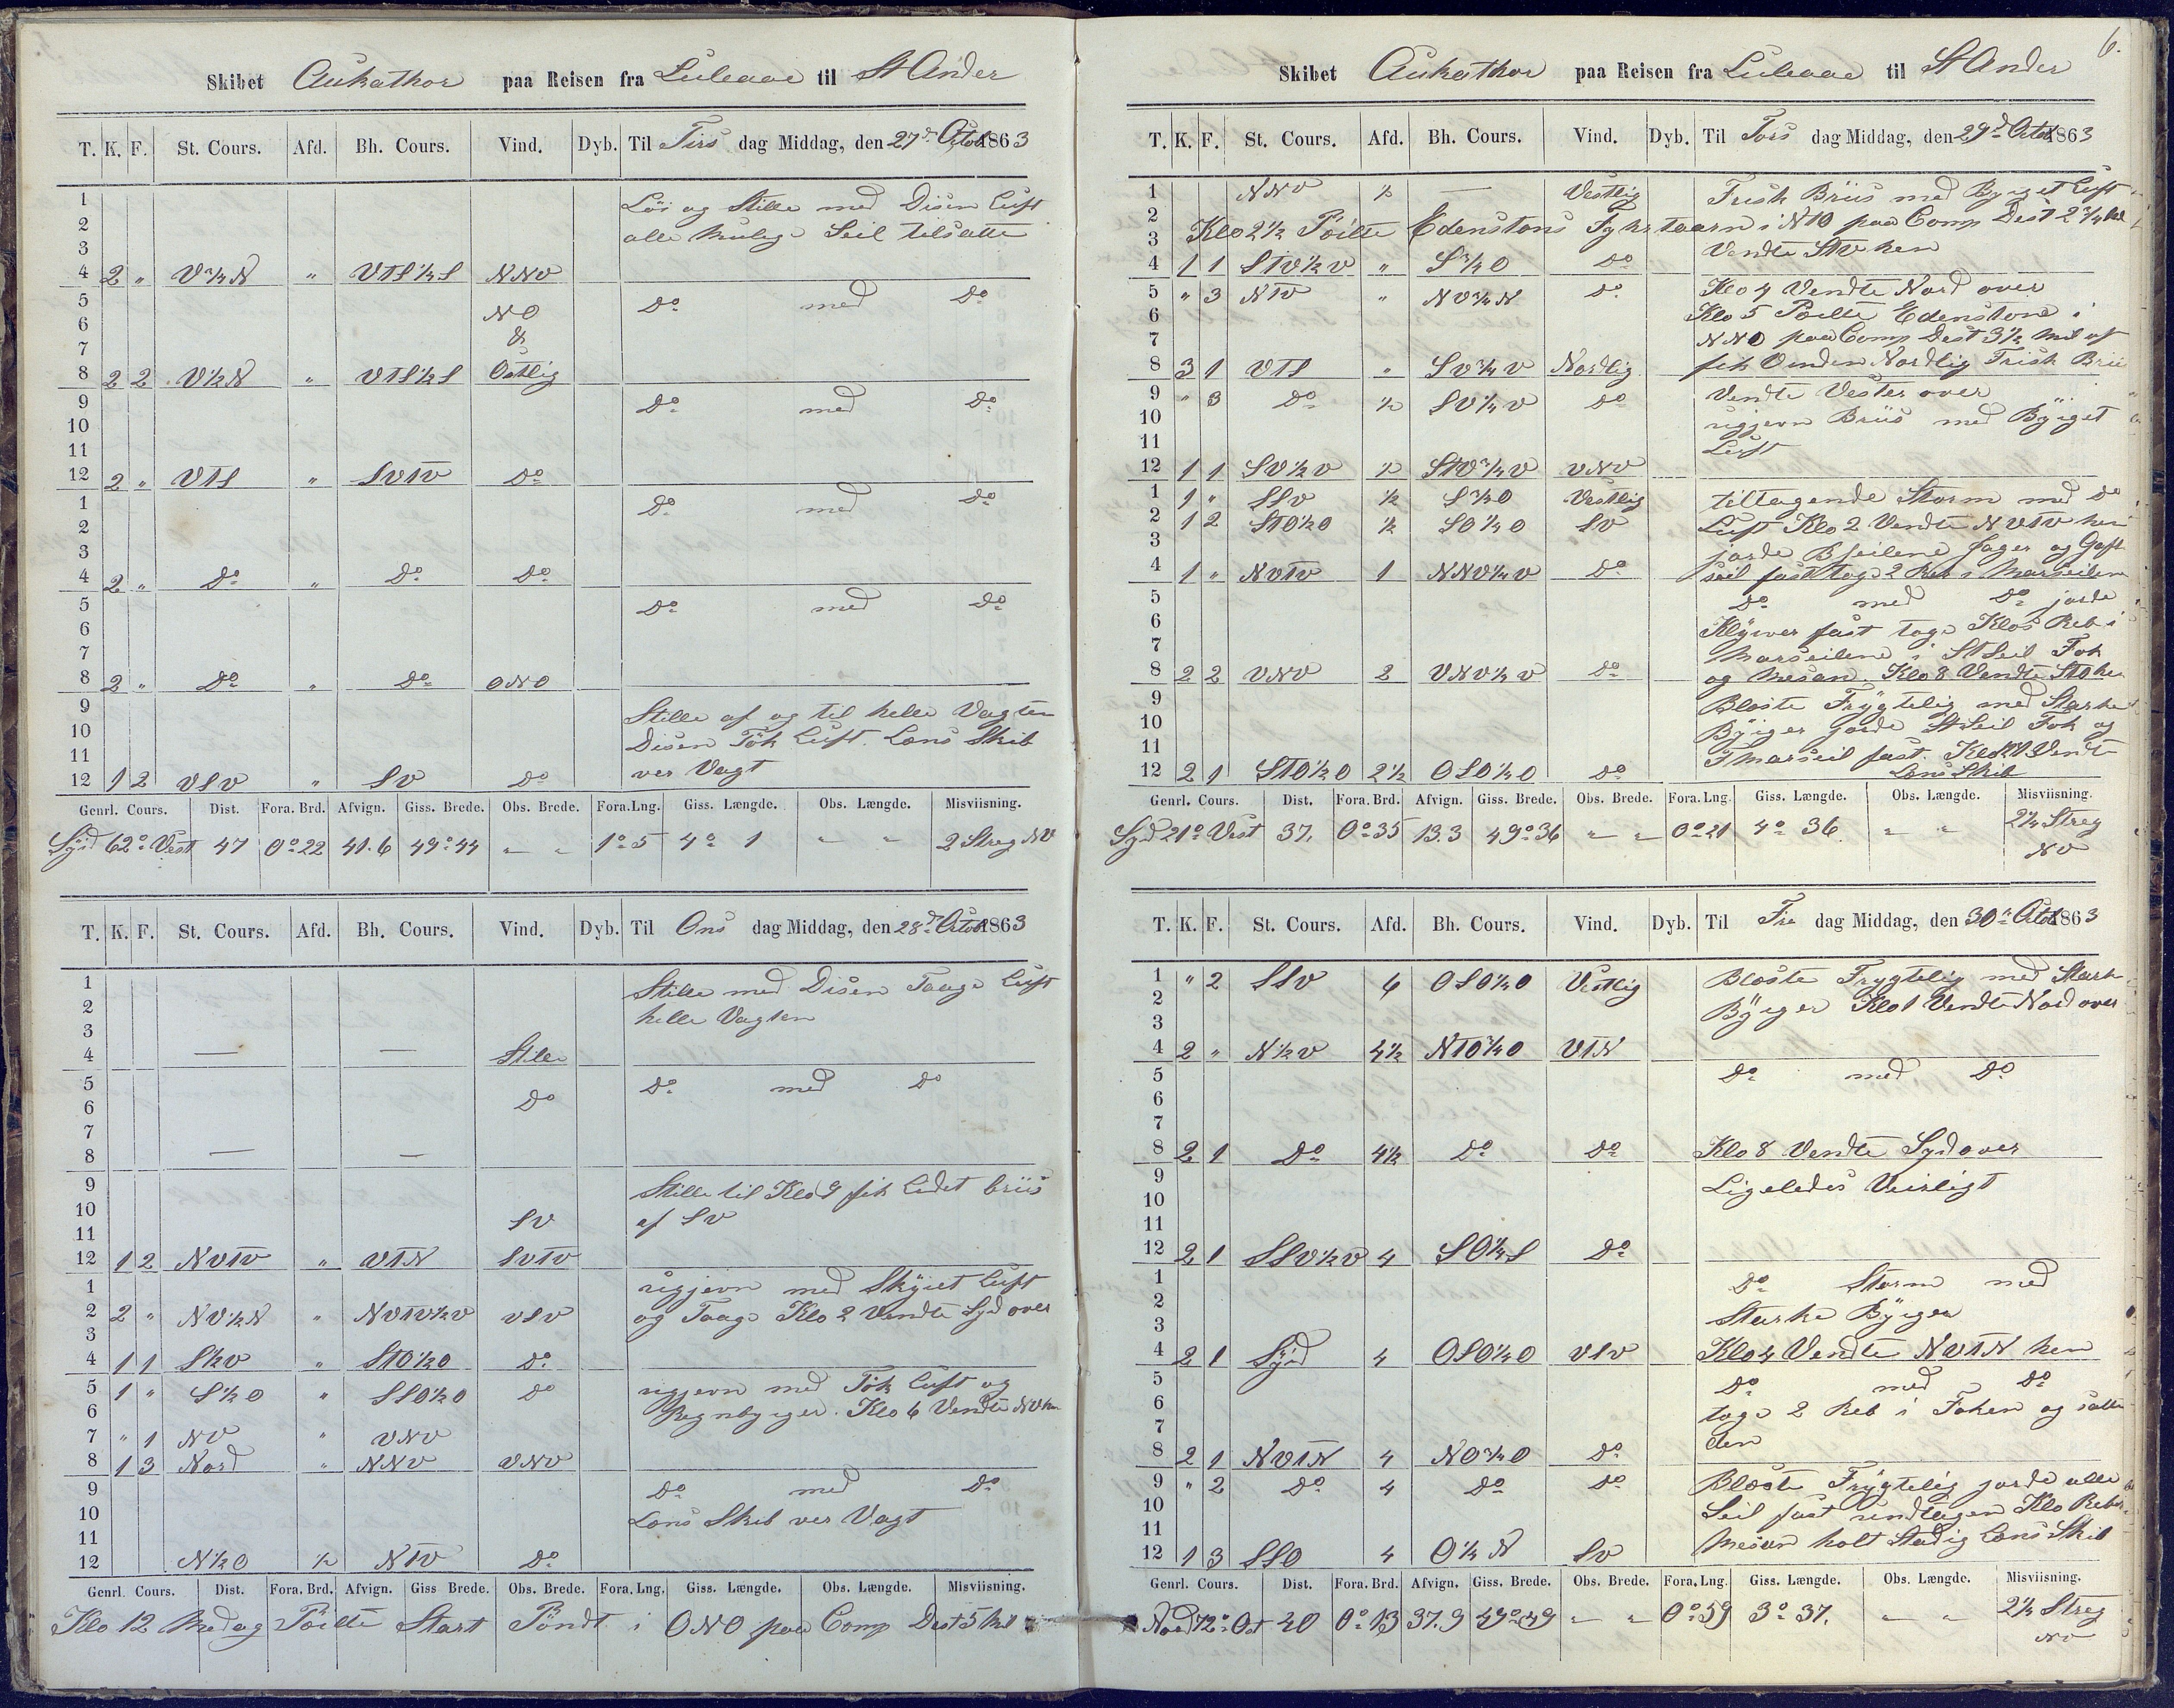 Skibet Aukathor paa Reisen fra Luleaae til St Ander
T. K. F. St. Cours. Afd. Bh. Cours. Vind. Dyb. Til Tirs dag Middag, den 27d Octob 1863
1 Löi og Stille med Disen Luft
2 alle mulige Seil tilsatte
3
4 2 " V¾N " VTS¼S NNV
5 NO Do med Do
6 &
7
8 2 2 V½N " VTS½S Östlig
9 Do med Do
10
11
12 2 " VTS " SVTV Do
1 Do med Do
2
3
4 2 " Do " Do Do
5 Do med Do
6
7
8 2 " Do " Do ONO
9 Stille af og til helle Vagten
10 Disen Tök Luft. Lens Skib
11 ver Vagt
12 1 2 VSV " SV Do
Genrl. Cours. Dist. Fora. Brd. Afvign. Giss. Brede. Obs. Brede. Fora. Lng. Giss. Længde. Obs. Længde. Misviisning.
Syd 62° Vest 47 0°22 41.6 49°44 " " 1°5 4° 1 " " 2 Streg NV
T. K. F. St. Cours. Afd. Bh. Cours. Vind. Dyb. Til Ons dag Middag, den 28d Octob 1863
1 Stille med Disen Taage Luft
2 helle Vagten
3
4 — — Stille
5 Do med Do
6 Do
7
8 — —
9 Stille til Klo 9 fik Lidet briis
10 SV af SV
11
12 1 2 NVTV " VTN SVTV
1 ugjevn med Skyiet Luft
2 2 " NV½N " NVTV½V VSV og Taage Klo 2 Vendte Syd over
3
4 1 1 S½V " STO½O Do
5 1 " S½O " SSO½O Do ugjevn med Tök Luft og
6 Regnbyger. Klo 6 Vendte NV hen
7 " 1 NV " VNV
8 1 3 Nord " NNV VNV
9 Do med Do
10 Lens Skib ver Vagt
11
12 N½O ½ NTV Do
Genrl. Cours. Dist. Fora. Brd. Afvign. Giss Brede. Obs. Brede. Fora. Lng. Giss. Længde. Obs. Længde. Misviisning.
Klo 12 Medag Pöilte Start Pöndt i ONO paa Comp Dest 5 Mil
6.
Skibet Aukathor paa Reisen fra Luleaae til St Ander
T. K. F. St. Cours. Afd. Bh. Cours. Vind. Dyb. Til Tors dag Middag, den 29d Octob 1863
1 NNV ½ — Vestlig Frisk Briis med Byiget Luft
2 Klo 2½ Pöilte Edenstons Fyhrtaarn i NTO paa Comp Dest 2¾ Mil
3 Vendte STV hen
4 1 1 STV½V " S¾O Do
5 " 3 NTV " NV¾N Do Klo 4 Vendte Nord over
6 Klo 5 Pöilte Edenstone i
7 NNO paa Comp Dest 3½ Mil af
8 3 1 VTS " SV¾V Nordlig fik Vinden Nordlig Frisk Brii
9 " 3 Do ½ SV¼V Do Vendte Vester over
10 ugjevn Briis med Byiget
11 Luft
12 1 1 SV½V ½ STV¾V VNV
1 1 " SSV ½ S¾O Vestlig tiltagende Storm med Do
2 1 2 STO½O ½ SO¼O SV Luft Klo 2 Vendte NVTV hen
3 jorde Bseilene Jager og Gaft
4 1 " NVTV 1 NNV¼V Do seil fast toge 2 Reb i Marseilene
5 Do med Do jorde
6 Klyver fast toge Klos Reb i
7 Marseilene i StSeil Fok
8 2 2 VNV 2 VNV½V Do og Mesan. Klo 8 Vendte STO hen
9 Bloste Frygtelig med Starke
10 Byiger jorde StSeil Fok og
11 F Marseil fast. Vendt
12 2 1 STO½O 2½ OSO¼O Do Lens Skib
Genrl. Cours. Dist. Fora. Brd. Afvign. Giss. Brede. Obs. Brede. Fora. Lng. Giss. Længde. Obs. Længde. Misviisning.
Syd 21° Vest 37, 0°35 13.3 49°36 " " 0°21 4° 36 " " 2¼ Streg
NV
T. K. F. St. Cours. Afd. Bh. Cours. Vind. Dyb. Til Fre dag Middag, den 30d Octob 1863
1 " 2 SSV 4 OSO¼O Vestlig Bloste Frygtelig med Stark
2 Byiger Klo 1 Vendte Nord over
3
4 2 " N½V 4½ NTO¾O VTN
5 Do med Do
6
7
8 2 1 Do 4½ Do Do Klo 8 Vendte Syd over
9 Ligeledes Veirligt
10
11
12 2 1 SSV½V 4 SO¼S Do
1 Do Storm med
2 Starke Byiger
3
4 2 1 Syd 4 OSO¼O VSV Klo 4 Vendte NVTN hen
5 Do med Do
6 toge 2 Reb i Foken og satte
7 den
8 2 1 NVTN 4 NO¾O Do
9 " 2 Do 4 Do Do Bloste Frygtelig jorde alle
10 Seil fast undtagen Klo Reb
11 Mesan holt Stadig Lens Skib
12 1 3 SSO 4 O¼N SV
Genrl. Cours. Dist. Fora. Brd. Afvign. Giss. Brede. Obs. Brede. Fora. Lng. Giss. Længde. Obs. Længde. Misviisning.
Nord 72° Ost 40 0°13 37.9 49°49 " " 0°59 3°37. " " 2¼ Streg
NV